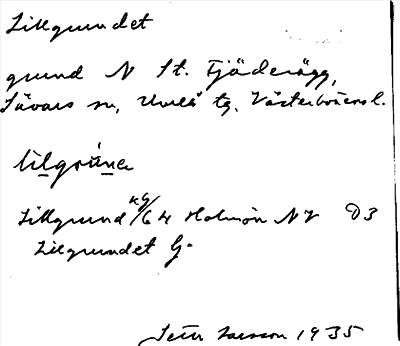 Lillgrundet
grund N St. Fjäderägg,
Sävars sn, Umeå tg. Västerbottens l.
lilgrúna
Lillgrund kg/64 Holmön NV D3
Lillgrundet G.
1935